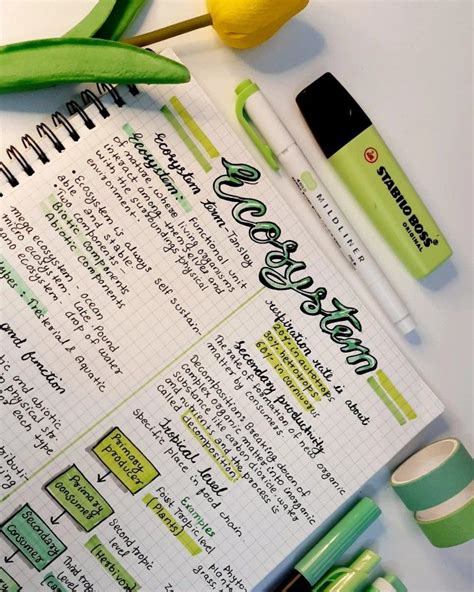 Ecosystem
Ecosystem term- Tansley
Ecosystem: Functional unit
of nature where living organisms
interact among themselves and
with the surrounding physical
environment.
• Ecosystem is always self sustain-
able and stable
Biotic components
Abiotic components
mega ecosystem - ocean
micro ecosystem - Lake, Pond
ecosystem - drop of water
types: Terrestrial & Aquatic
and function
respiration rate is about
20% in autotrop
30% hetrotrops
60% in carnivory
Secondary productivity
The rate of formation of new organic
matter by consumers
Decompositions: Breaking down of
complex organic matter into inorganic
substance like carbon dioxide, water
and nutrients and the process is
called decomposition
Tropical level
Specific place in food chain
Examples
Primary
producer
First Tropic level
(Plants)
Primary
consumer
Second tropic
level
(Herbivor
Secondary
Consumer
Third tropic
level
Phyto
grass, t
MILDLINER
STABILO BOSS
ORIGINAL